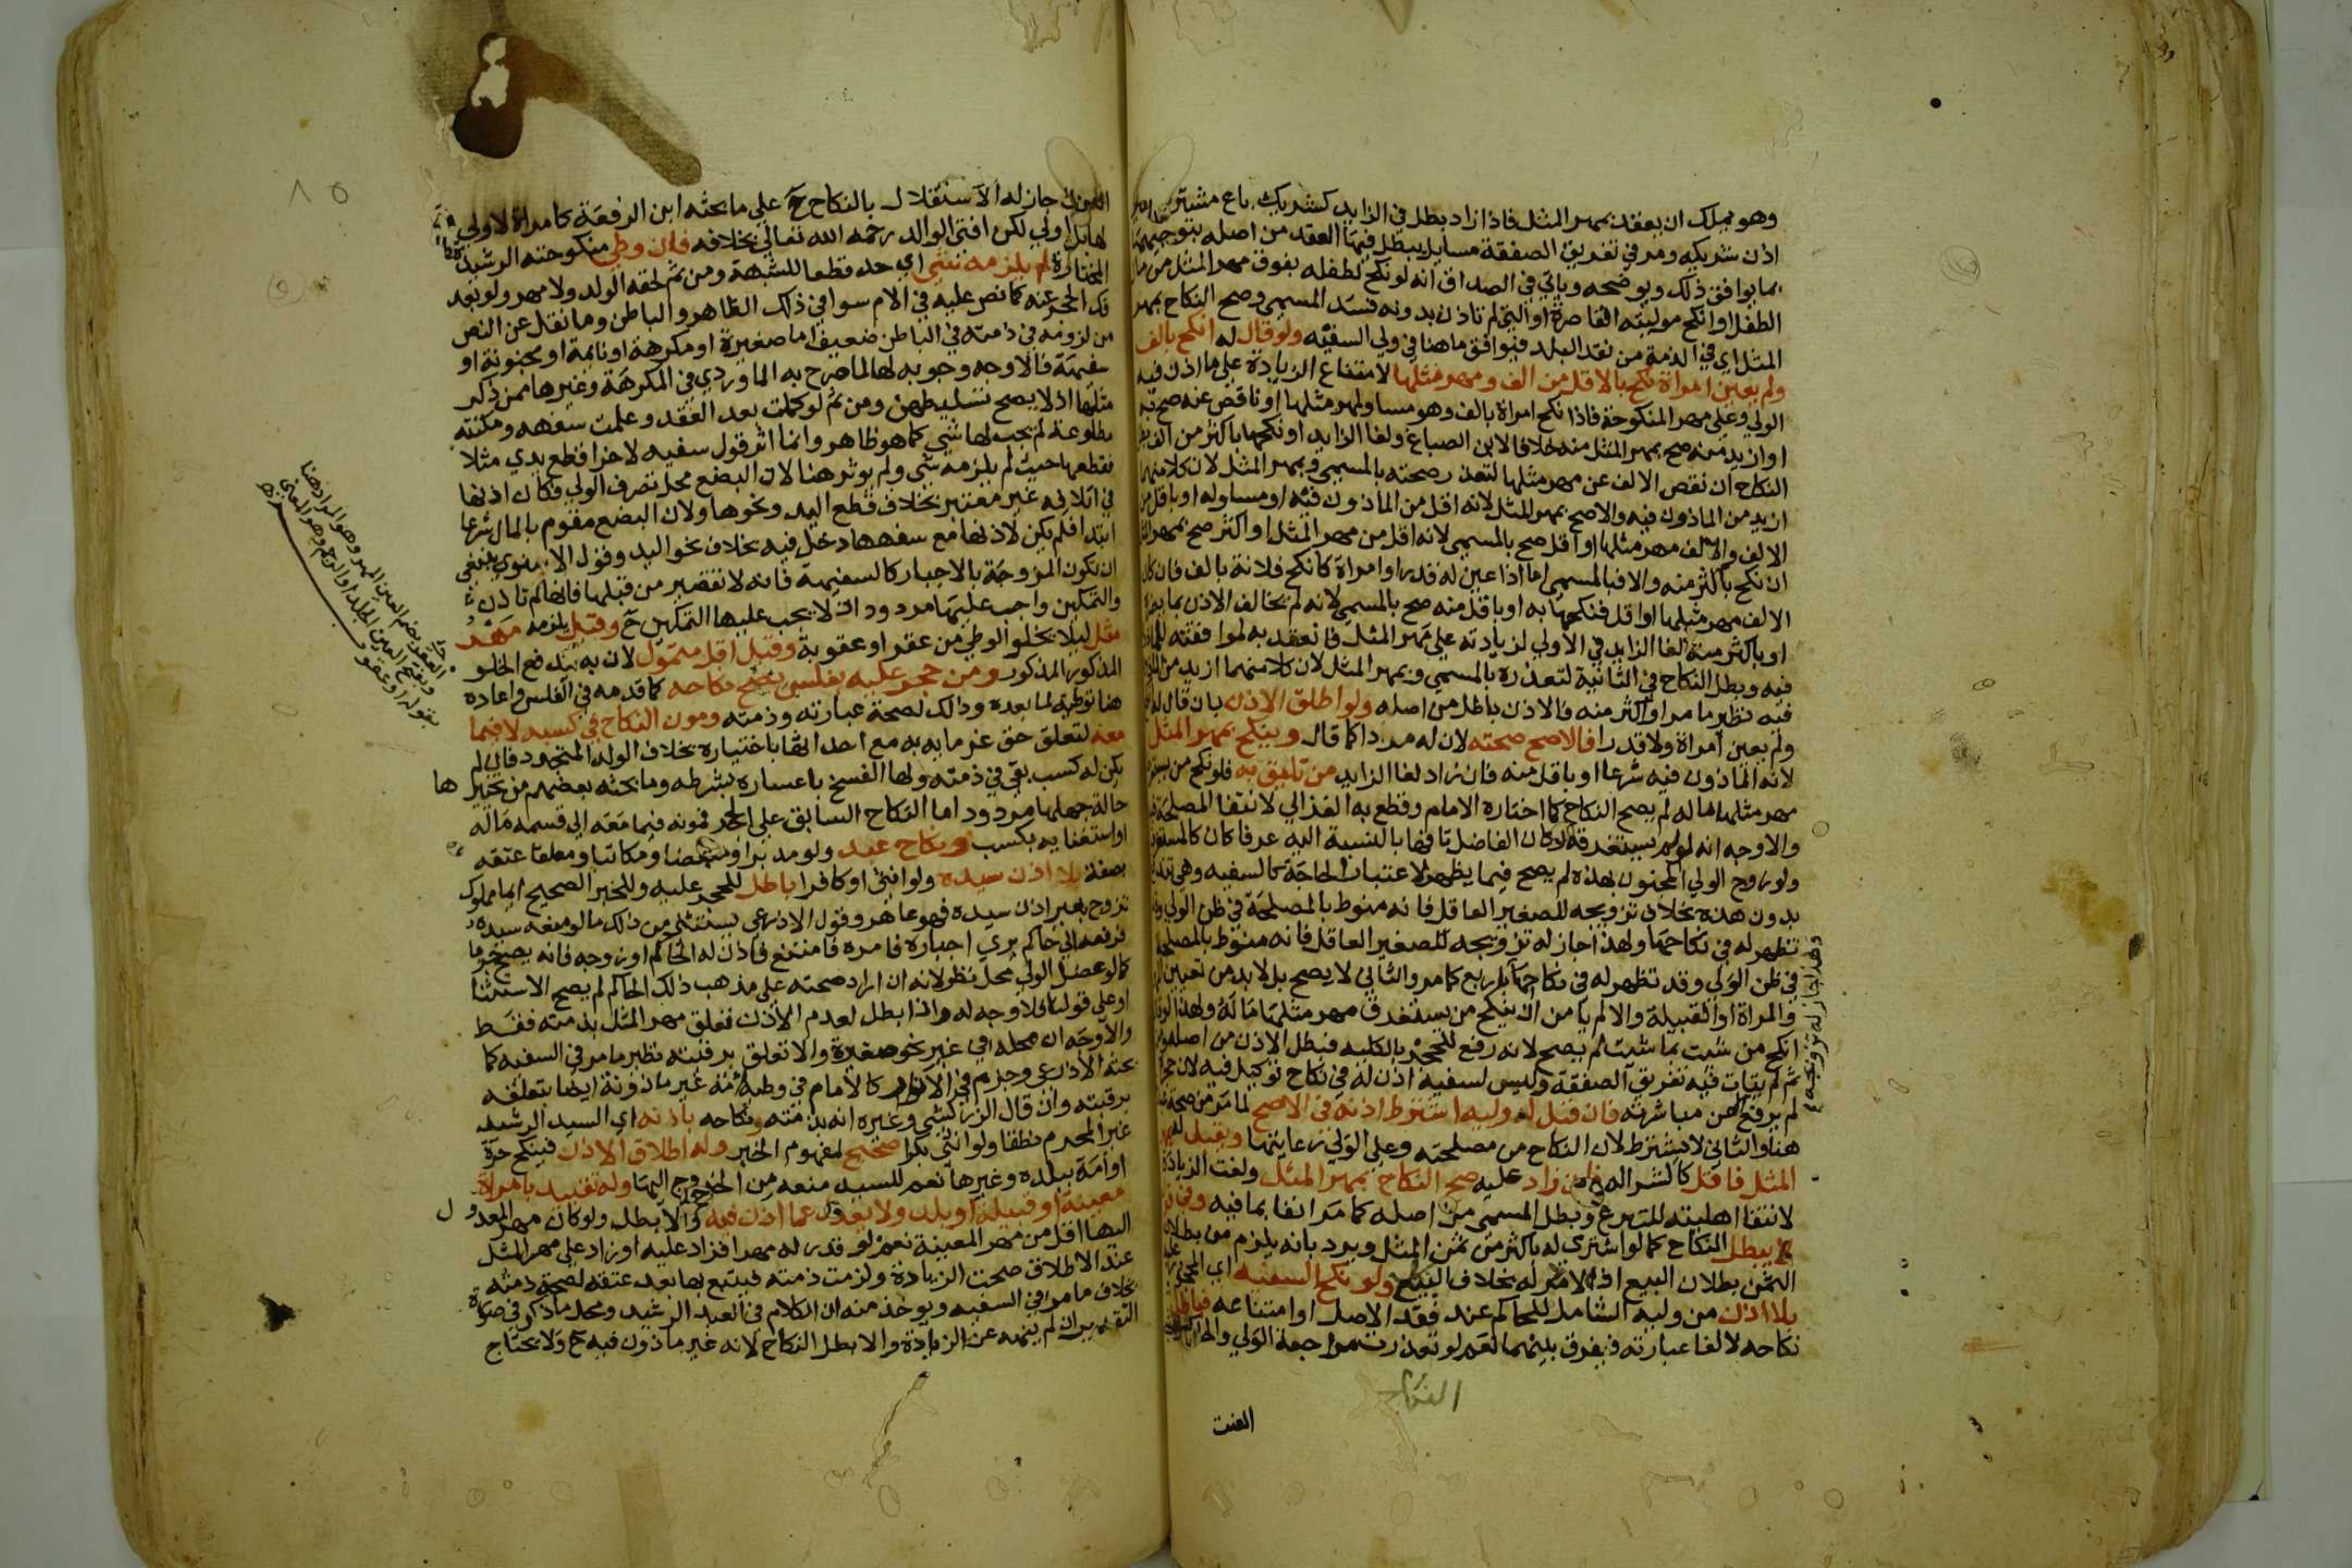 وهو يملك ان يعقد بمهر المثل فاذا زاد بطل في الزايد كشريك باع مشترك
اذن شريكه ومر في تفريق الصفقة مسايل يبطل فيها العقد من اصله بتوجيهها
بما يوافق ذلك ويوضحه وياتي في الصداق انه لو نكح لطفله بفوق مهر المثل من مال
الطفل او انكح موليته القاصرة او التي لم تاذن بدونه فسد المسمي وصح النكاح بمهر
المثل اي في الذمة من نقد البلد فيوافق ما هنا في ولي السفيه ولو قال له انكح بالف
ولم يعين امراة نكح بالاقل من الف ومهر مثلها لامتناع الزيادة على ما اذن فيه
الولي وعلى مهر المنكوحة فاذا نكح امراة بالف وهو مساو لمهر مثلها او ناقص عنه صح به
او ازيد منه صح بمهر المثل منه خلافا لابن الصباغ ولغا الزايد او نكحها باكثر من الف
النكاح ان نقص الالف عن مهر مثلها لتعذر صحته بالمسمي وبمهر المثل لان كلا منهما
ازيد من الماذون فيه والا صح بمهر المثل لانه اقل من الماذون فيه او مساو له او باقل من
الالف والالف مهر مثلها او اقل صح بالمسمي لانه اقل من مهر المثل او اكثر صح بمهر
ان نكح باكثر منه والا فبالمسمي اما اذا عين له قدرا وامراة كانكح فلانة بالف فان كان
الالف مهر مثلها او اقل فنكحها به او باقل منه صح بالمسمي لانه لم يخالف الاذن بما يضر
او باكثر منه لغا الزايد في الاولي لزيادته علي مهر المثل فانعقد به لموافقته للماذون
فيه وبطل النكاح في الثانية لتعذره بالمسمي وبمهر المثل لان كلا منهما ازيد من
فيه نظير ما مر او اكثر منه فالاذن باطل من اصله ولو اطلق الاذن بان قال له
ولم يعين امراة ولا قدرا فالاصح صحته لان له مردا كما قال وينكح بمهر المثل
لانه الماذون فيه شرعا او باقل منه فان زاد لغا الزايد من تليق به فلو نكح من
مهر مثلها ماله لم يصح النكاح كما اختاره الامام وقطع به الغزالي لانتفا المصلحة
والاوجه انه لو لم يستغرقه وكان الفاضل تافها بالنسبة اليه عرفا كان كالمستغرق
ولو زوج الولي المجنون بهذه لم يصح فيما يظهر لاعتبار الحاجة كالسفيه وهي
بدون هذه بخلاف تزويجه للصغير العاقل فانه منوط بالمصلحة في ظن الولي
تظهر له في نكاحها ولهذا جاز له تزويجه للصغير العاقل فانه منوط بالمصلحة
في ظن الولي وقد تظهر له في نكاحها باربع كما مر والثاني لا يصح بل لا بد من تعيين
والمراة او القبيلة والا لم يامن ان ينكح من يستغرق مهر مثلها ماله ولهذا لو
انكح من شيت بما شيت لم يصح لانه رفع للحجر بالكليه فبطل الاذن من اصله
ثم لم يتات فيه تفريق الصفقة وليس لسفيه اذن له في نكاح توكيل فيه لان
لم يرفع عن مباشرته فان قبل له وليه اشترط اذنه في الاصح لما مر من صحة
هنا والثاني لا يشترط لان النكاح من مصلحته وعلى الولي رعايتها ويقبل له
المثل فاقل كالشرا له فان زاد عليه صح النكاح بمهر المثل ولغت الزيادة
لانتفا اهليته للتبرع وبطل المسمي من اصله كما مر انفا بما فيه وفي
يبطل النكاح كما لو اشتري له باكثر من ثمن المثل ويرد بانه يلزم من بطلان
الثمن بطلان البيع اذ لا مرد له بخلاف ولو نكح السفيه اي المحجور
بلا اذن من وليه الشامل للحاكم عند فقد الاصل او امتناعه فباطل
نكاحه لالغا عبارته فيفرق بينهما نعم لو تعذرت مراجعة الولي والحاكم
العنت
جاز له الاستقلال بالنكاح ح علي ما بحثه ابن الرفعة كامراة لا ولي
لها بل اولي لكن افتي الوالد رحمه الله تعالي بخلافه فان وطي منكوحته الرشيدة
المختارة لم يلزمه شي اي حد قطعا للشبهة ومن ثم لحقه الولد ولا مهر ولو بعد
فك الحجر عنه كما نص عليه في الام سوا في ذلك الظاهر والباطن وما نقل عن النص
من لزومه في ذمته في الباطن ضعيف اما صغيرة او مكرهة او نايمة او مجنونة او
سفيهة فالاوجه وجوبه لها لما صرح به الماوردي في المكرهة وغيرها ممن ذكر
مثلها اذ لا يصح تسليطهن ومن ثم لو كملت بعد العقد وعلمت سفهه ومكنته
مطاوعة لم يجب لها شي كما هو ظاهر وانما اثر قول سفيه لاخر اقطع يدي مثلا
فقطعها حيث لم يلزمه شي ولم يوثر هنا لان البضع محل تصرف الولي فكان اذنها
في اتلافه غير معتبر بخلاف قطع اليد ونحوها ولان البضع مقوم بالمال شرعا
ابتدا فلم يكن لاذنها مع سفهها دخل فيه بخلاف نحو اليد وقول الاسنوي ينبغي
ان تكون المزوجة بالاجبار كالسفيهة فانه لا تقصير من قبلها فانها لم تاذن
والتمكين واجب عليها مردود اذ لا يجب عليها التمكين ح وقيل يلزمه مهر
مثل ليلا يخلو الوطي من عقر او عقوبة وقيل اقل متمول لان به يندفع الخلو
المذكور المذكور ومن حجر عليه بفلس يصح نكاحه كما قدمه في الفلس واعاده
هنا توطية لما بعده وذلك لصحة عبارته وذمته ومون النكاح في كسبه لا فيما
معه لتعلق حق غرمايه به مع احداثها باختياره بخلاف الولد المتجدد فان لم
يكن له كسب بقي في ذمته ولها الفسخ باعساره بشرطه وما بحثه بعضهم من تخيير ها
حالة جهلها مردود اما النكاح السابق على الحجر فمونه فيما معه الي قسمه ماله
او استغنايه بكسب ونكاح عبد ولو مدبرا ومبعضا ومكاتبا ومعلقا عتقه
بصفة بلا اذن سيده ولو انثي او كافرا باطل للحجر عليه وللخبر الصحيح ايما مملوك
تزوج بغير اذن سيده فهو عاهر وقول الاذرعي يستثني من ذلك ما لو منعه سيده
فرفعه الي حاكم يري اجباره فامره فامتنع فاذن له الحاكم او زوجه فانه يصح جزما
كما لو عضل الولي محل نظر لانه ان اراد صحته على مذهب ذلك الحاكم لم يصح الاستثنا
او علي قولنا فلا وجه له واذا بطل لعدم الاذن تعلق مهر المثل بذمته فقط
والاوجه ان محله في غير نحو صغيرة والا تعلق برقبته نظير ما مر في السفيه كما
بحثه الاذرعي وجزم في الانوار كالامام في وطيه امة غير ماذونة ايضا بتعلقه
برقبته وان قال الزركشي وغيره انه بذمته ونكاحه باذنه اي السيد الرشيد
غير المحرم نطقا ولو انثي بكرا صحيح لمفهوم الخبر وله اطلاق الاذن فينكح حرة
او امة ببلده وغيرها نعم للسيد منعه من الخروج اليها وله تقييد بامراة
معينة او قبيلة او بلد ولا يعدل عما اذن فيه والا بطل ولو كان مهر المعدول
اليها اقل من مهر المعينة نعم لو قدر له مهرا فزاد عليه او زاد على مهر المثل
عند الاطلاق صحت الزيادة ولزمت ذمته فيتبع بها بعد عتقه لصحة ذمته
بخلاف ما مر في السفيه ويوخذ منه ان الكلام في العبد الرشيد ومحل ما ذكر في صورة
التقدير ان لم ينهه عن الزيادة والا بطل النكاح لانه غير ماذون فيه ح ولا يحتاج
العقر بضم العين المهر وهو المراد هنا